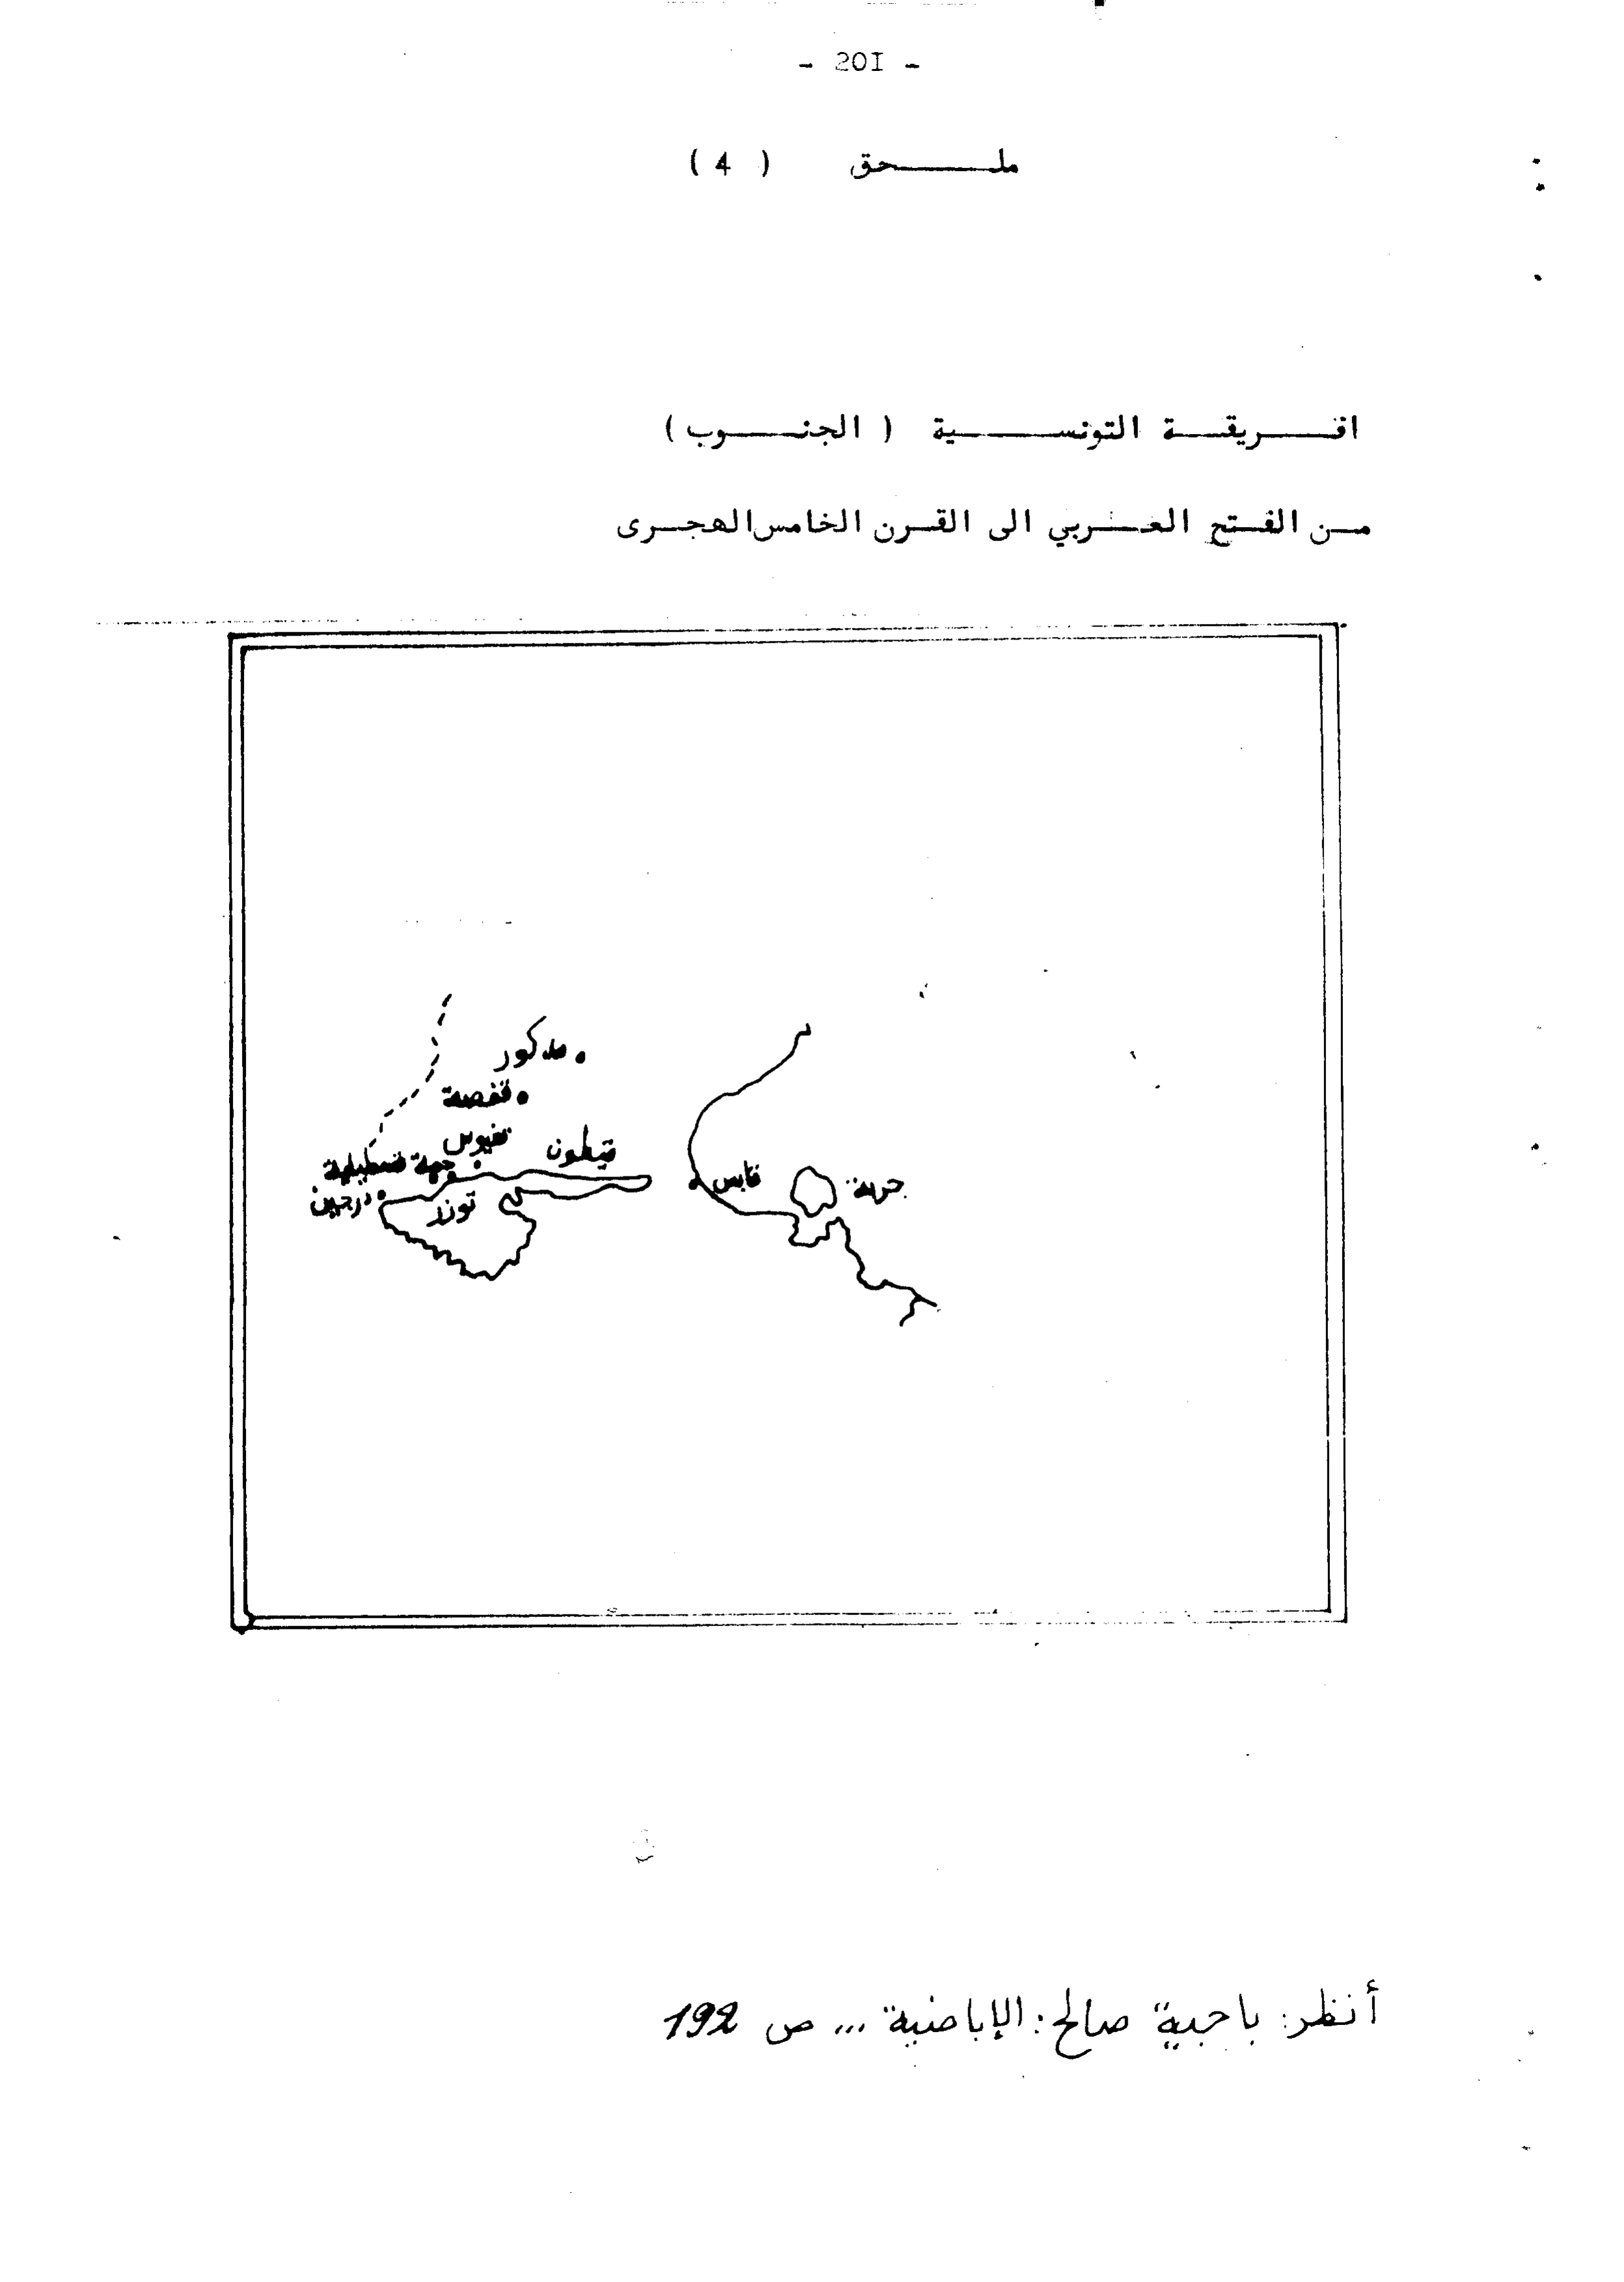 - 20I -
ملحق ( 4 )
افريقة التونسية ( الجنوب )
من الفتح العربي الى القرن الخامس الهجرى
مدكور
قفصة
تقيوس
قيطون
جهة قسطيلية
درجين
توزر
قابس
جربة
أنظر: باجية صالح: الإباضية ... ص 192